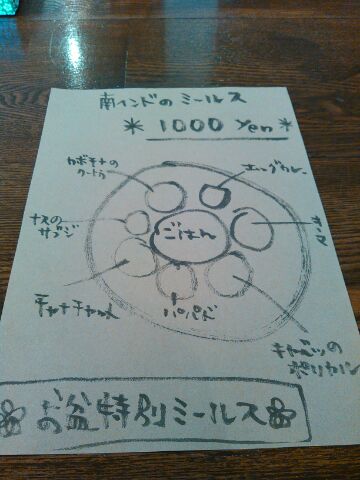 南インドのミールス
＊1000 Yen＊
カボチャの
クートゥ
エッグカレー
ナスの
サブジ
ごはん
チャナチャット
パパド
キャベツの
ポリヤル
お盆特別ミールス